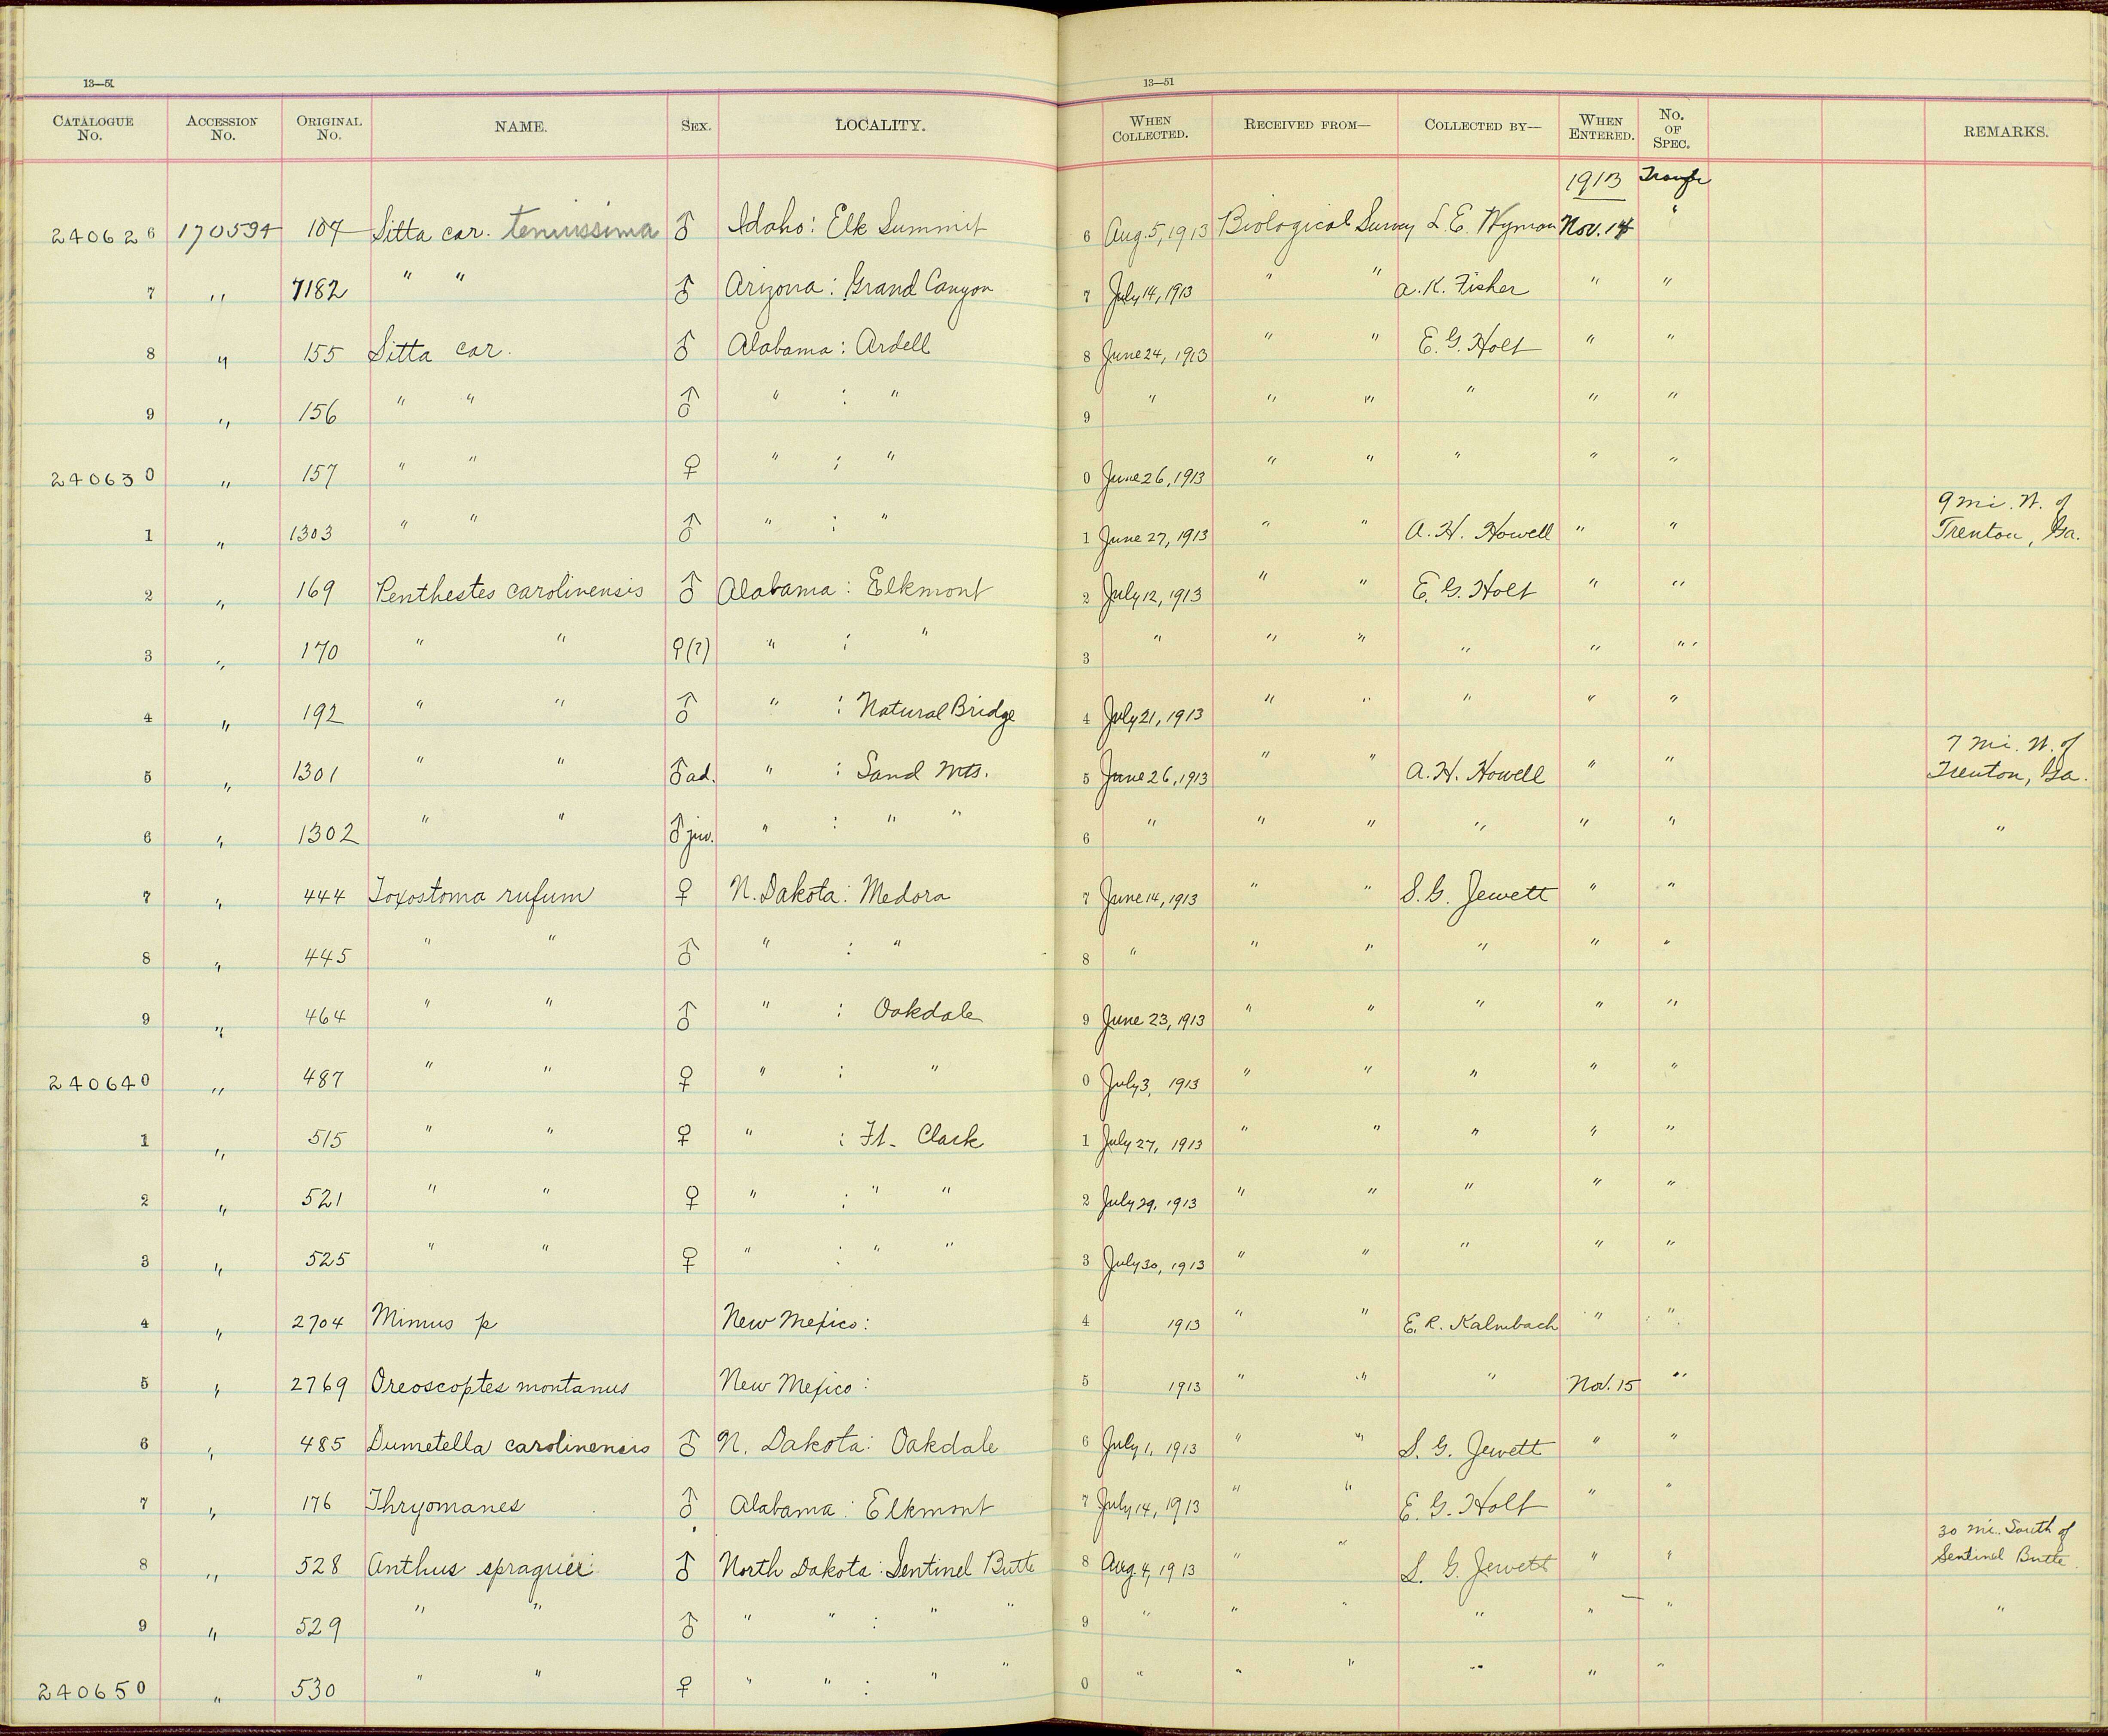 13—51
13—51
CATALOGUE No. ACCESSION No. ORIGINAL No. NAME. SEX. LOCALITY. WHEN COLLECTED. RECEIVED FROM— COLLECTED BY— WHEN ENTERED. No. OF SPEC. REMARKS.
1913
240626 170594 107 Sitta car. tenuissima ♂ Idaho: Elk Summit 6 Aug. 5, 1913 Biological Survey L. E. Wyman Nov. 14 "
7 " 7182 " " ♂ Arizona: Grand Canyon 7 July 14, 1913 " " A. K. Fisher " "
8 " 155 Sitta car. ♂ Alabama: Ardell 8 June 24, 1913 " " E. G. Holt " "
9 " 156 " " ♂ " : " 9 " " " " " "
240630 " 157 " " ♀ " : " 0 June 26, 1913 " " " " "
1 " 1303 " " ♂ " : " 1 June 27, 1913 " " A. H. Howell " " 9 mi. W. of
Trenton, Ga.
2 " 169 Penthestes carolinensis ♂ Alabama: Elkmont 2 July 12, 1913 " " E. G. Holt " "
3 " 170 " " ♀(?) " : " 3 " " " " " "
4 " 192 " " ♂ " : Natural Bridge 4 July 21, 1913 " " " " "
5 " 1301 " " ♂ ad. " : Sand Mts. 5 June 26, 1913 " " A. H. Howell " " 7 mi. W. of
Trenton, Ga.
6 " 1302 " " ♂ juv. " : " " 6 " " " " " " "
7 " 444 Toxostoma rufum ♀ N. Dakota: Medora 7 June 14, 1913 " " S. G. Jewett " "
8 " 445 " " ♂ " : " 8 " " " " " "
9 " 464 " " ♂ " : Oakdale 9 June 23, 1913 " " " " "
240640 " 487 " " ♀ " : " 0 July 3, 1913 " " " " "
1 " 515 " " ♀ " : Ft. Clark 1 July 27, 1913 " " " " "
2 " 521 " " ♀ " : " " 2 July 29, 1913 " " " " "
3 " 525 " " ♀ " : " " 3 July 30, 1913 " " " " "
4 " 2704 Mimus p New Mexico: 4 1913 " " E. R. Kalmbach " "
5 " 2769 Oreoscoptes montanus New Mexico: 5 1913 " " " Nov. 15 "
6 " 485 Dumetella carolinensis ♂ N. Dakota: Oakdale 6 July 1, 1913 " " S. G. Jewett " "
7 " 176 Thryomanes ♂ Alabama: Elkmont 7 July 14, 1913 " " E. G. Holt " "
8 " 528 Anthus spragueii ♂ North Dakota: Sentinel Butte 8 Aug. 4, 1913 " " S. G. Jewett " " 30 mi. South of
Sentinel Butte.
9 " 529 " " ♂ " " : " " 9 " " " " " " "
240650 " 530 " " ♀ " " : " " 0 " " " " " "